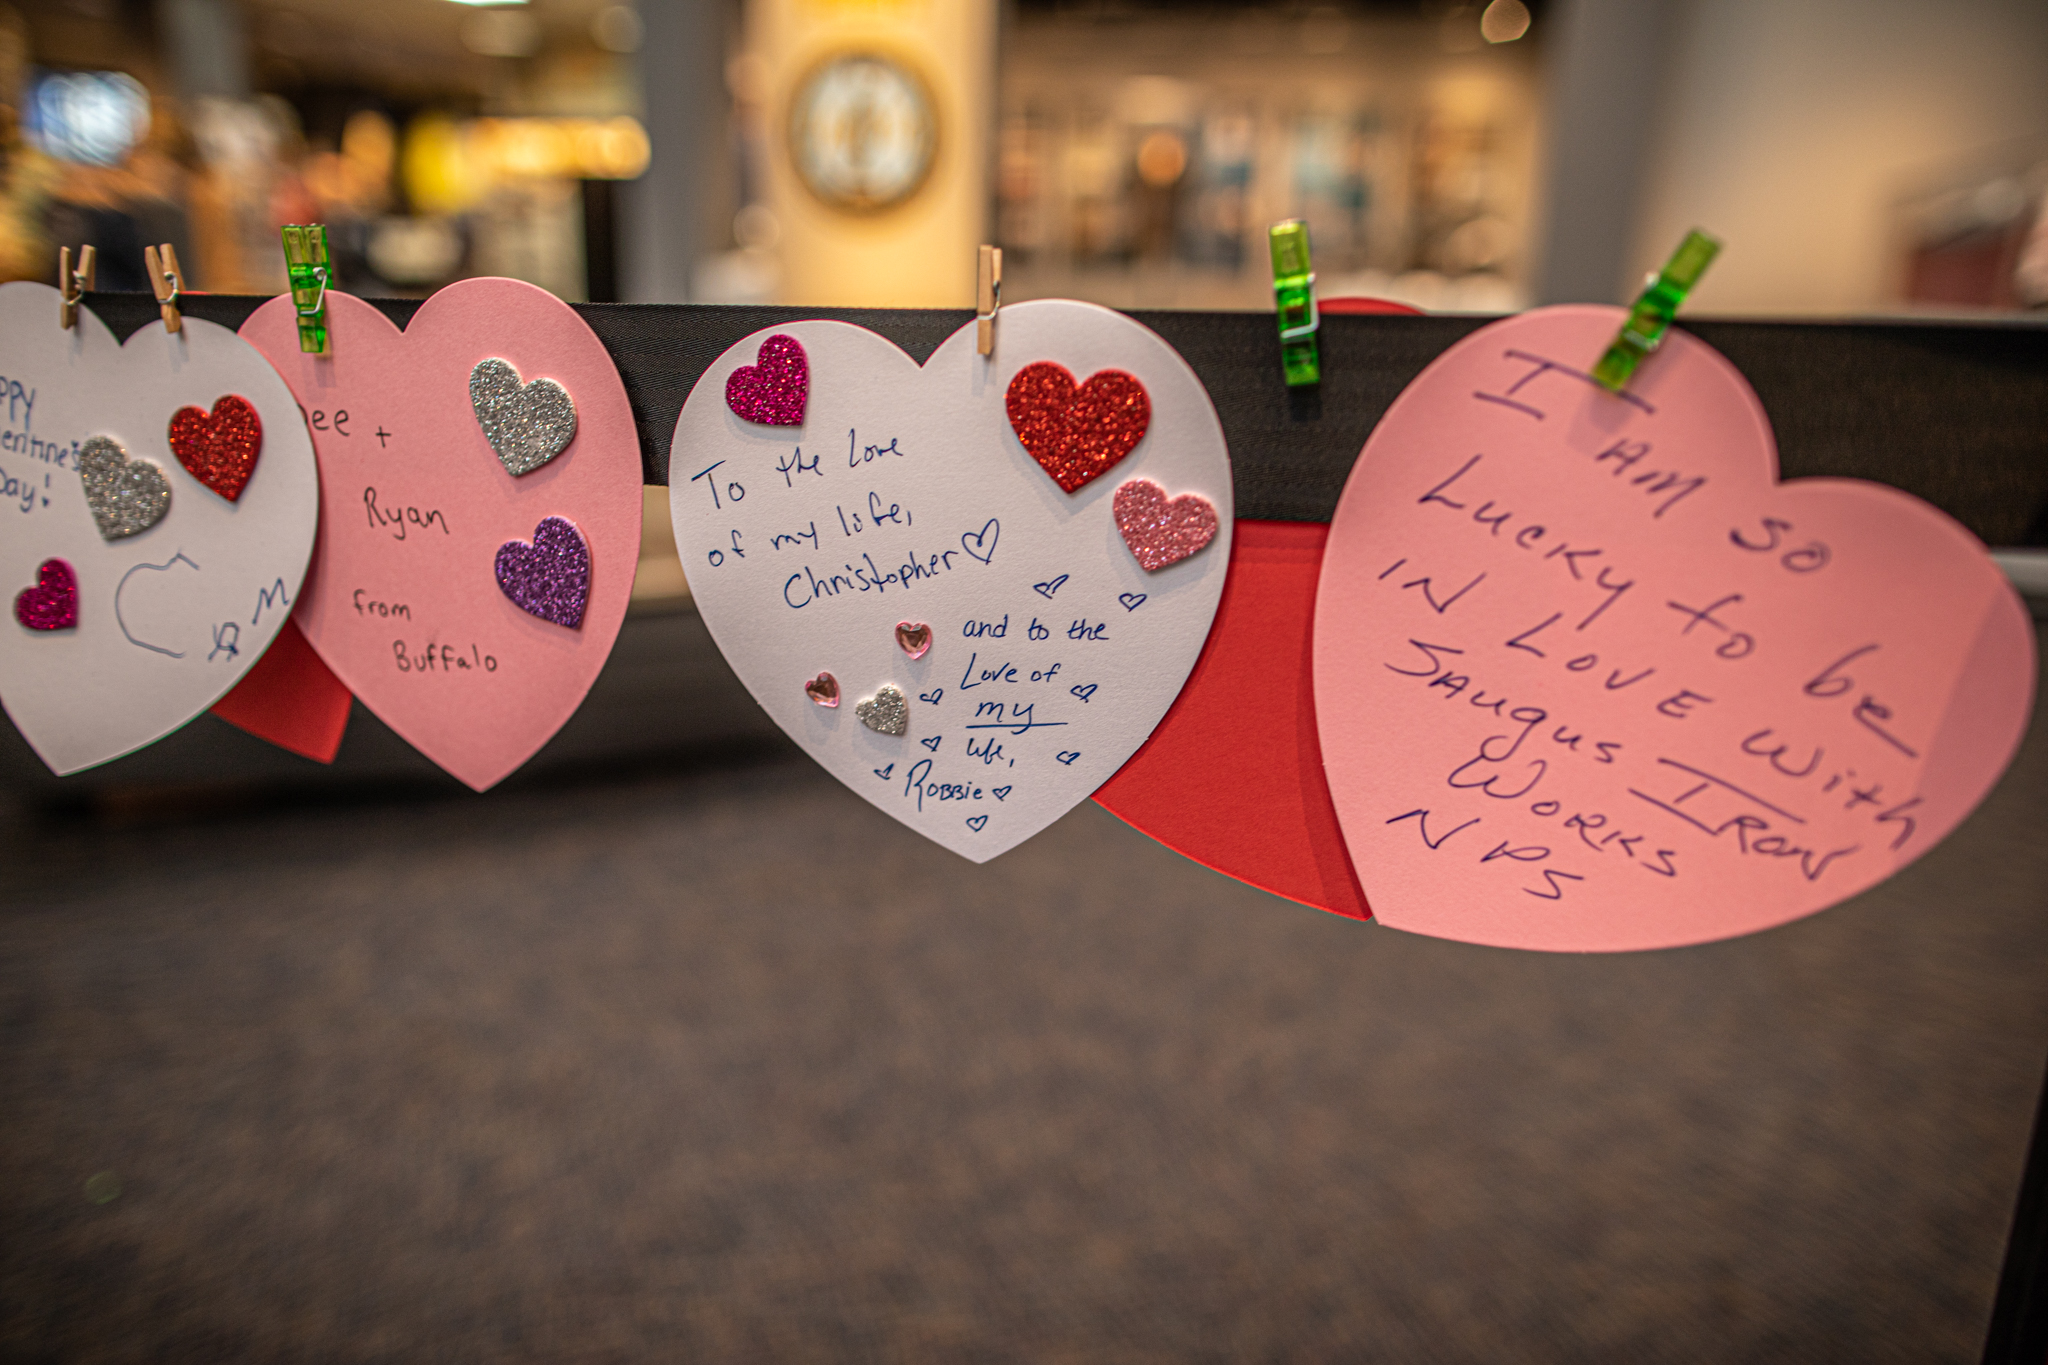 Day!
Ryan
from
Buffalo
To the love
of my life,
Christopher
and to the
Love of
my
life,
Robbie
I AM so
Lucky to be
IN LOVE with
SAugus IRON
WORKS
NPS